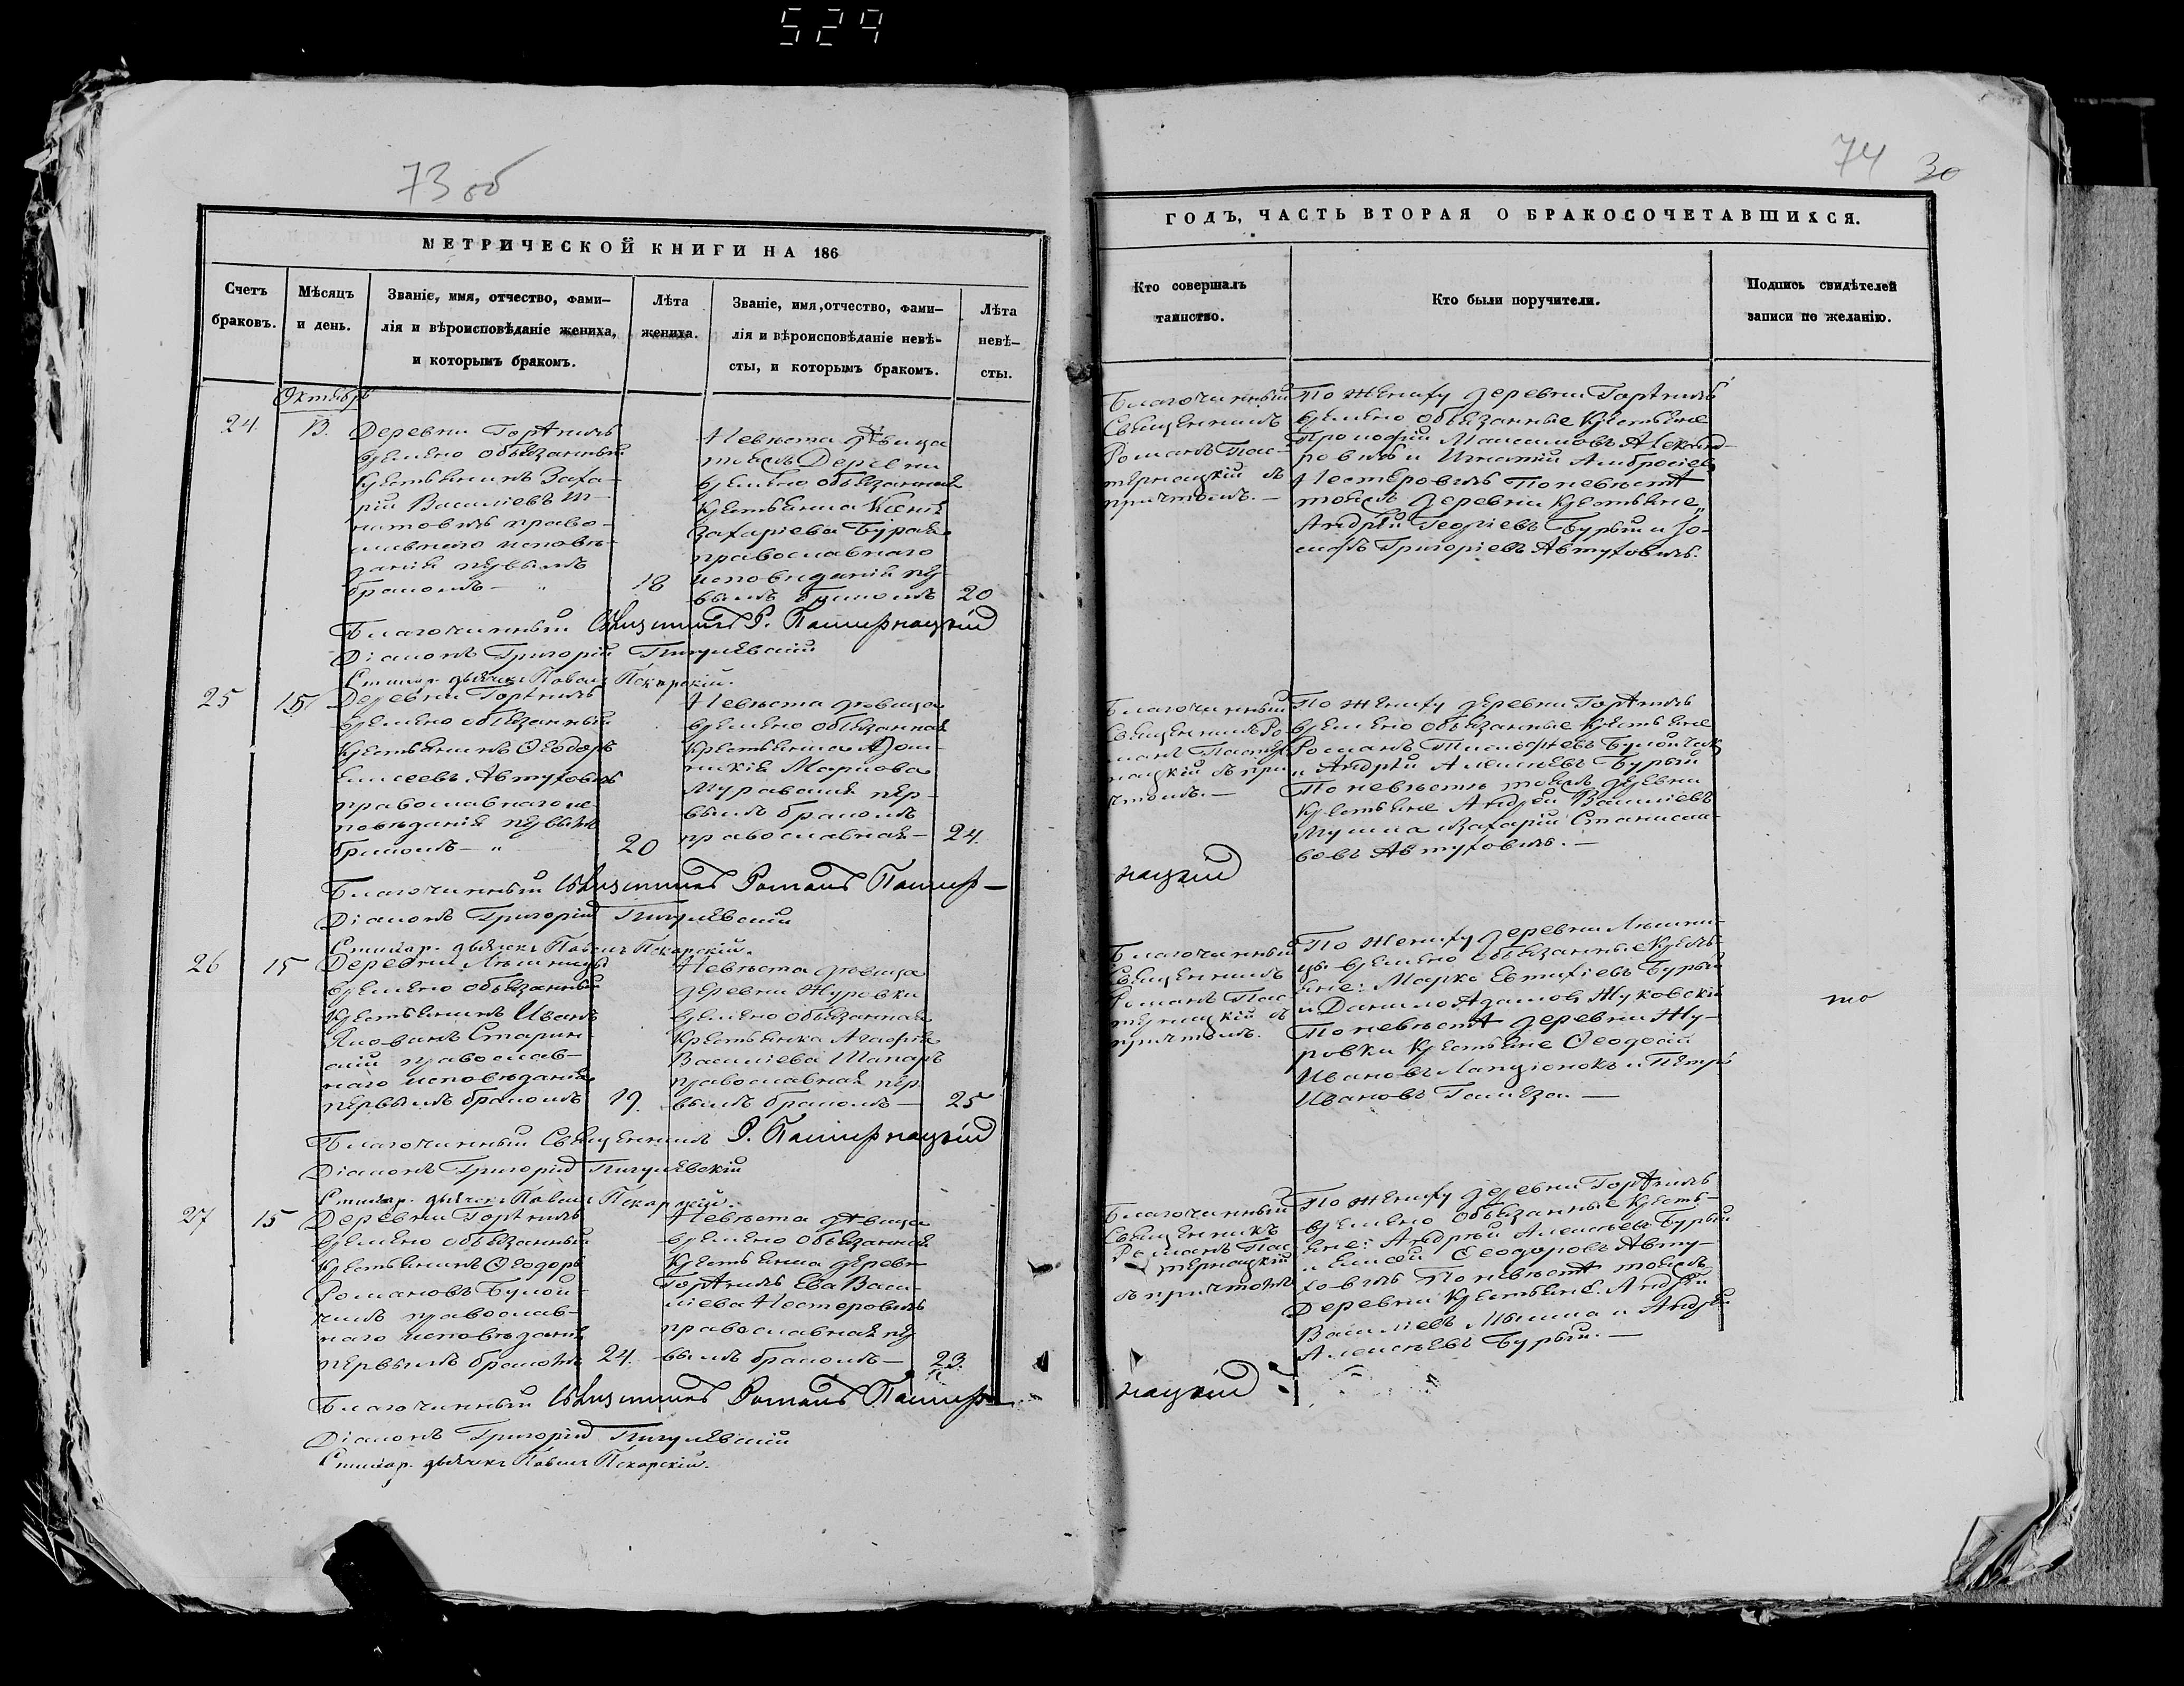 529
73 об
74 30
МЕТРИЧЕСКОЙ КНИГИ НА 186
ГОДЪ, ЧАСТЬ ВТОРАЯ О БРАКОСОЧЕТАВШИХСЯ.
Счетъ
браковъ.
Мѣсяцъ
и день.
Званіе, имя, отчество, фами-
лія и вѣроисповѣданіе жениха,
и которымъ бракомъ.
Лѣта
жениха.
Званіе, имя, отчество, фами-
лія и вѣроисповѣданіе невѣ-
сты, и которымъ бракомъ.
Лѣта
невѣ-
сты.
Кто совершалъ
таинство.
Кто были поручители.
Подпись свидѣтелей
записи по желанію.
Октябрь
24.
13.
Деревни
временно обязанный
крестьянинъ Заха-
рій Василіевъ
право-
славнаго исповѣ-
данія первымъ
бракомъ —
18
Невѣста дѣвица
Деревни
временно обязанная
крестьянка Ксенія
Захаріева
православнаго
исповѣданія пер-
вымъ бракомъ
20
Благочинный
Священникъ
Романъ Пас-
тернацкій съ
причтомъ. —
По жениху деревни
временно обязанные крестьяне
Прокофій Максимовъ Александ-
ровичъ и Игнатій Амбросіевъ
Нестеровичъ По невѣстѣ
деревни крестьяне
Андрей Георгіевъ Бурый и Іо-
сифъ Григоріевъ Автуховичъ.
Благочинный Священникъ Р. Пастернацкій
Діаконъ Григорій Пигулевскій
Стихар. дьячекъ Павелъ Пекарскій.
25
15
Деревни
временно обязанный
крестьянинъ Ѳеодоръ
Елисеевъ Автуховичъ
православнаго ис-
повѣданія первымъ
бракомъ —
20
Невѣста дѣвица
временно обязанная
крестьянка Дом-
никія Маркова
Муравская пер-
вымъ бракомъ
православная —
24.
Благочинный
Священникъ Ро-
манъ Пастер-
нацкій съ при-
чтомъ. —
По жениху деревни
временно обязанные крестьяне
Романъ Тимофѣевъ
и Андрей Алексѣевъ Бурый
По невѣстѣ деревни
крестьяне Андрей Василіевъ
и Захарій Станисла-
вовъ Автуховичъ. —
Благочинный Священникъ Романъ Пастер-
нацкій
Діаконъ Григорій Пигулевскій
Стихар. дьячекъ Павелъ Пекарскій.
26
15
Деревни
временно обязанный
крестьянинъ Иванъ
православ-
наго исповѣданія
первымъ бракомъ
19.
Невѣста дѣвица
деревни Журовки
временно обязанная
крестьянка Агафія
Василіева Шапаръ
православная пер-
вымъ бракомъ —
25
Благочинный
Священникъ
Романъ Пас-
тернацкій съ
причтомъ.
По жениху деревни
временно обязанные кресть-
яне: Марко Евтихіевъ Бурый
и Данило Адамовъ Жуковскій
По невѣстѣ деревни Жу-
ровки крестьяне Ѳеодосій
Ивановъ и Петръ
Ивановъ
Благочинный Священникъ Р. Пастернацкій
Діаконъ Григорій Пигулевскій
Стихар. дьячекъ Павелъ Пекарскій.
27
15
Деревни
временно обязанный
крестьянинъ Ѳеодоръ
Романовъ
православ-
наго исповѣданія
первымъ бракомъ
24.
Невѣста дѣвица
временно обязанная
крестьянка деревни
Ева Васи-
ліева Нестеровичъ
православная пер-
вымъ бракомъ —
23.
Благочинный
Священникъ
Романъ Пас-
тернацкій
съ причтомъ
По жениху деревни
временно обязанные кресть-
яне: Андрей Алексѣевъ Бурый
и Елисей Ѳеодоровъ Авту-
ховичъ По невѣстѣ
деревни крестьяне: Андрей
Василіевъ и Андрей
Алексѣевъ Бурый. —
Благочинный Священникъ Романъ Пастер-
нацкій
Діаконъ Григорій Пигулевскій
Стихар. дьячекъ Павелъ Пекарскій.